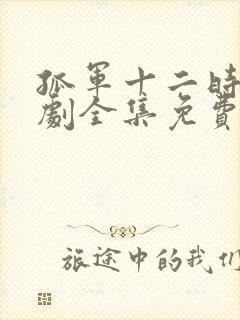 孤軍十二時
劇全集免費
旅途中的我們